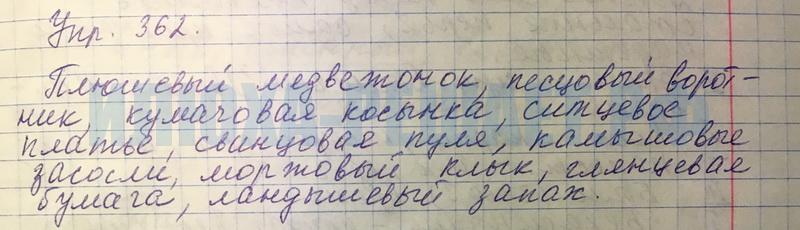 Упр. 362.
Плюшевый медвежонок, песцовый ворот-
ник, кумачовая косынка, ситцевое
платье, свинцовая пуля, камышовые
засосли, моржовый клык, глянцевая
бумага, ландышевый запах.